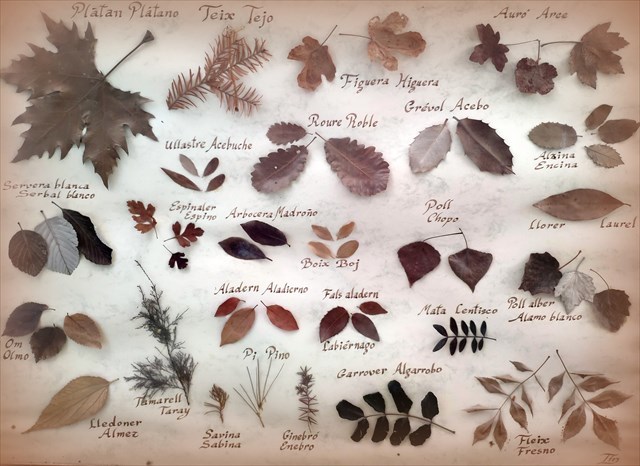 Platan Plátano
Teix Tejo
Auró Arce
Figuera Higuera
Grévol Acebo
Roure Roble
Ullastre Acebuche
Alzina
Encina
Servera blanca
Serbal blanco
Espinaler
Espino
Arbocera Madroño
Poll
Chopo
Llorer Laurel
Boix Boj
Aladern Aladierno
Fals aladern
Labiérnago
Mata Lentisco
Poll alber
Alamo blanco
Om
Olmo
Pi Pino
Tamarell
Taray
Garrover Algarrobo
Lledoner
Almez
Savina
Sabina
Ginebró
Enebro
Fleix
Fresno